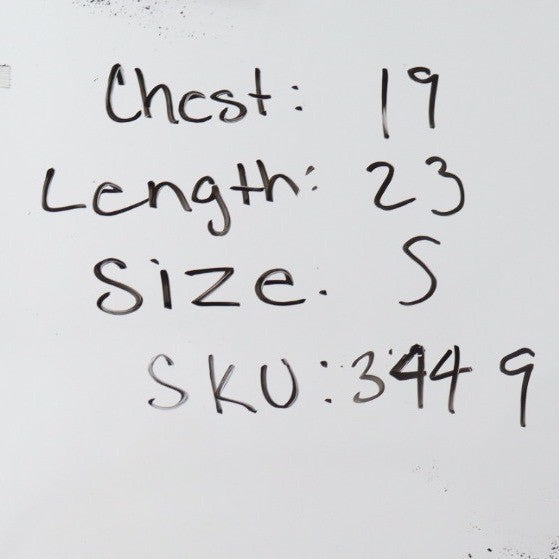 Chest: 19
Length: 23
Size. S
SKU: 3449